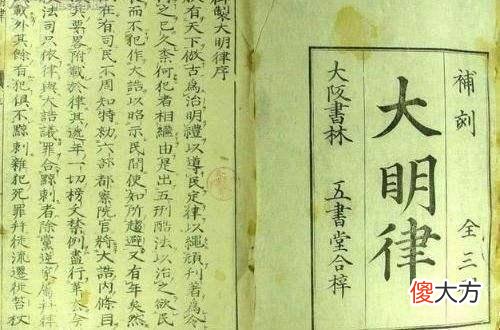 補刻 全三
大明律
大阪書林 五書堂合梓
御製大明律序
朕有天下倣古為治明禮以導民定律以繩頑刊著為令
之已久奈何犯者相繼由是出五刑酷法以治之欲民
而不犯作大誥以昭示民間使知所趨避又有年矣然
在有司民不周知特勅六部都察院官將大誥內條目
其要略附載於律其遞年一切榜文禁例盡行革去今
法司只依律與大誥議罪合黥刺者除黨逆家屬并律
載外其餘有犯俱不黥刺雜犯死罪并徒流遷徙笞杖
傻大方